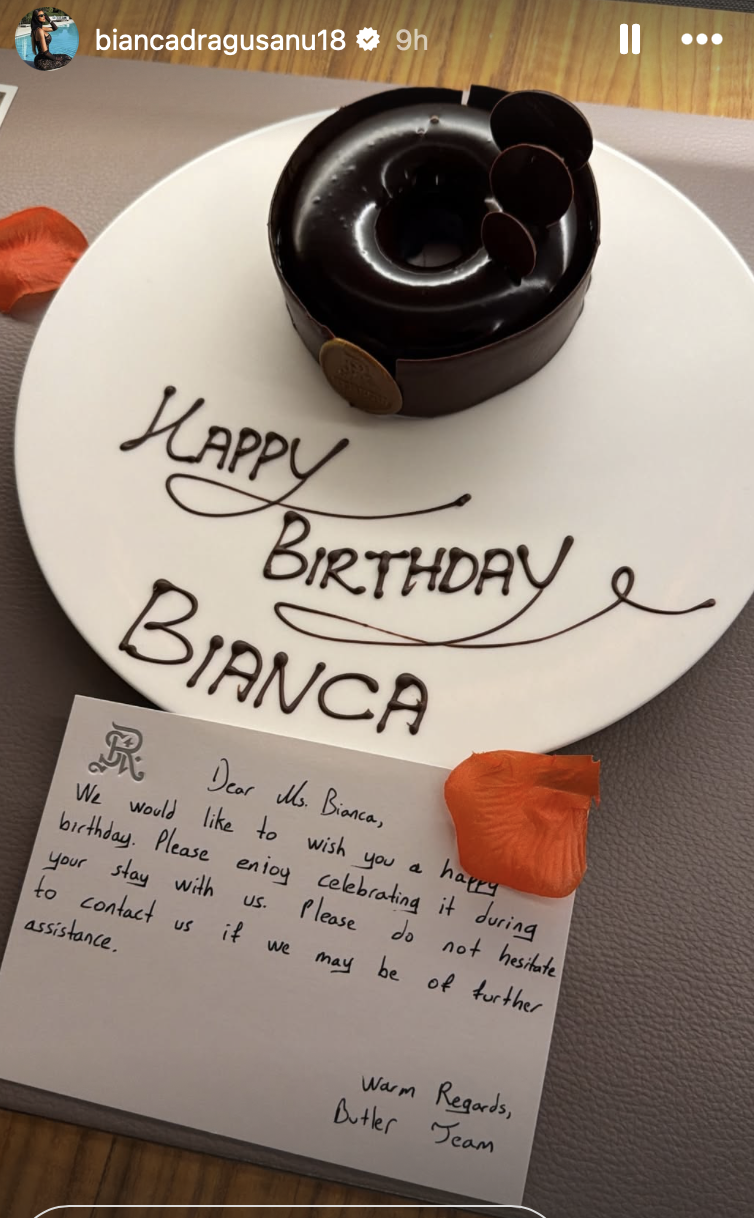 biancadragusanu18 9h
HAPPY
BIRTHDAY
BIANCA
Dear Ms. Bianca,
We would like to wish you a happy
birthday. Please enjoy celebrating it during
your stay with us. Please do not hesitate
to contact us if we may be of further
assistance.
Warm Regards,
Butler Team